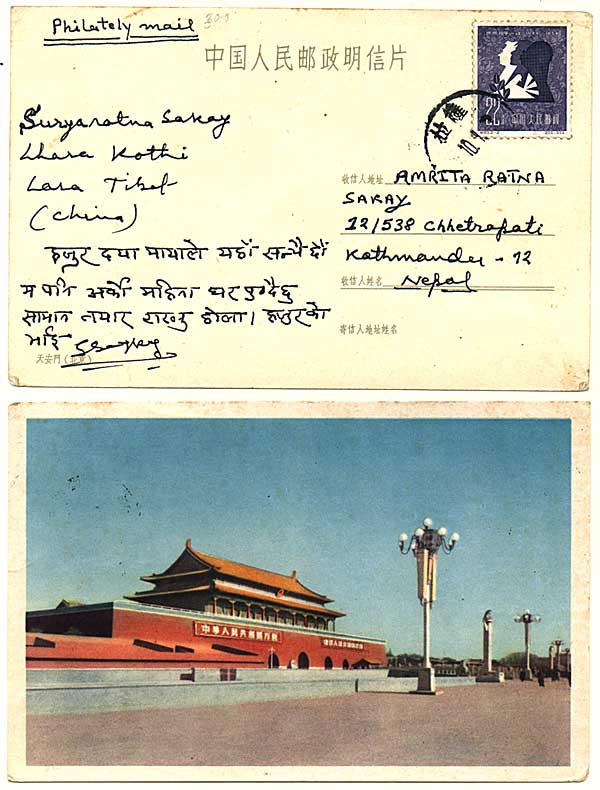 Philately mail
300
中国人民邮政明信片
22分 中国人民邮政
Suryaratna Sakay
Lhara Kothi
Lasa Tibet
(China)
हजुर दया मायाले यहाँ सन्चै छौं
म पनि अर्को महिना घर पुग्दैछु
सामान तयार राख्नु होला। हजुरको
भाई
天安門(北京)
收信人地址 AMRITA RATNA
SAKAY
12/538 Chhetrapati
Kathmandu - 12
收信人姓名 Nepal
寄信人地址姓名
中华人民共和国万岁